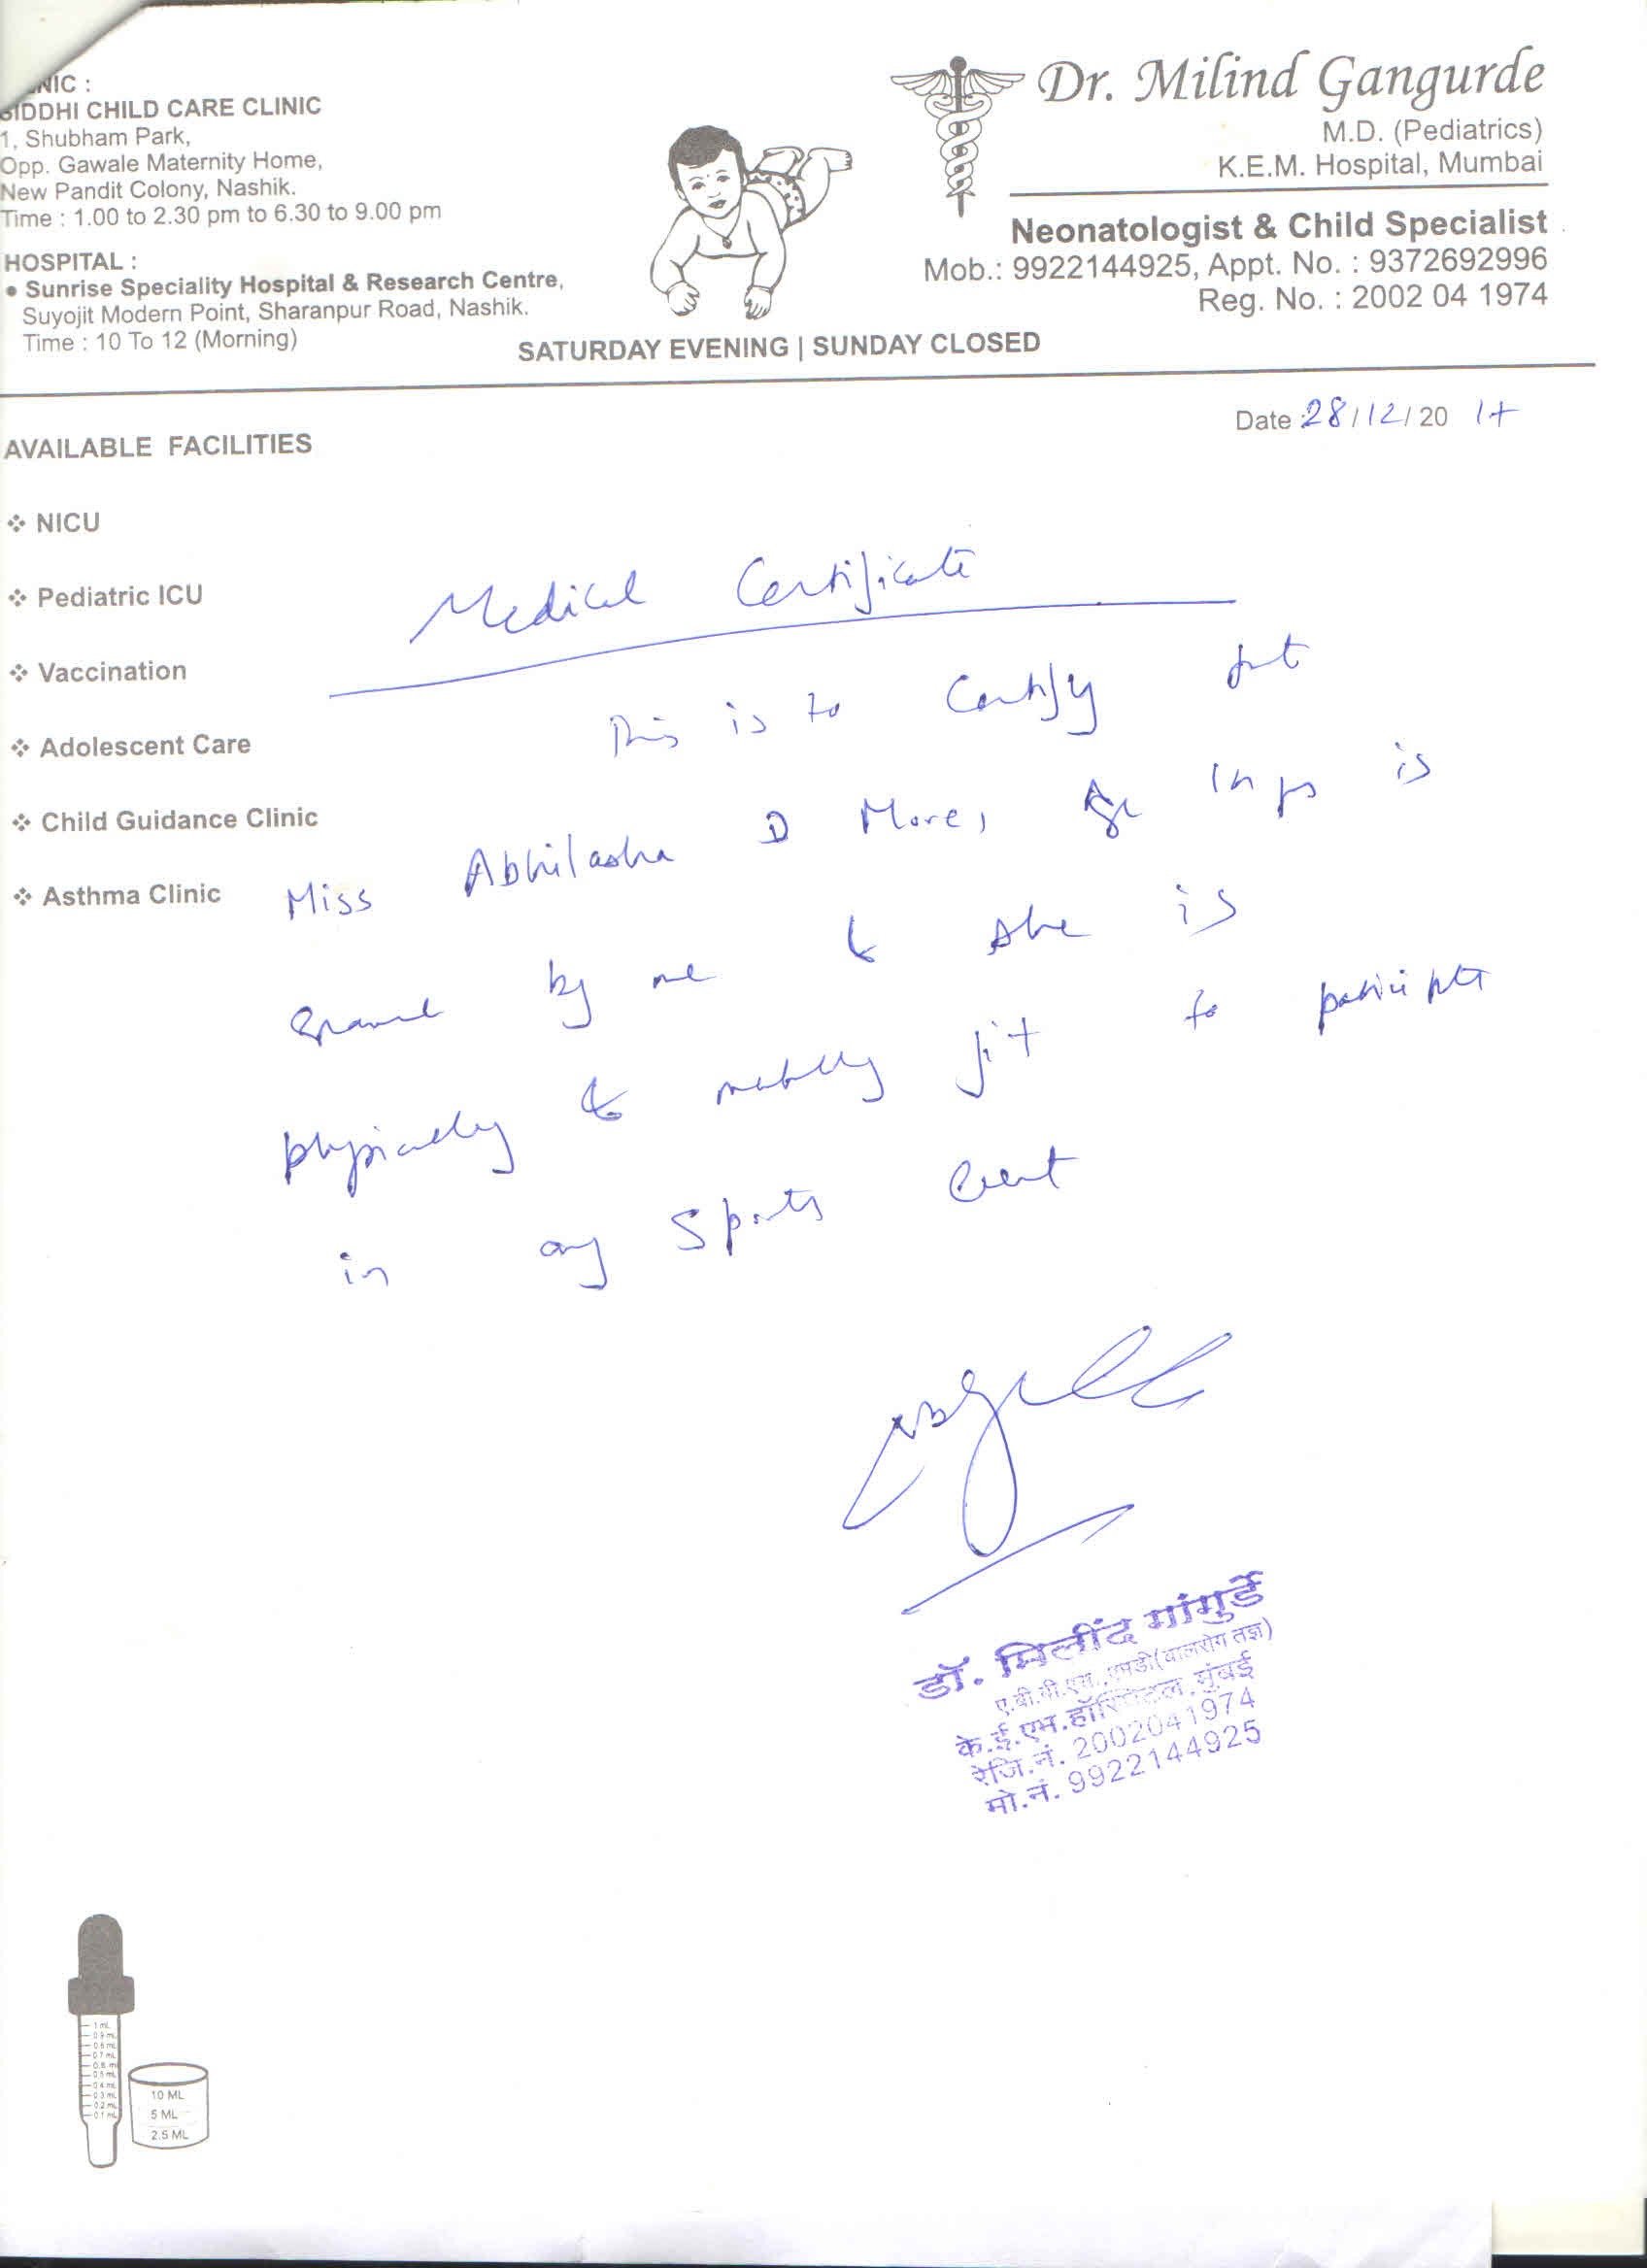 NIC :
SIDDHI CHILD CARE CLINIC
1, Shubham Park,
Opp. Gawale Maternity Home,
New Pandit Colony, Nashik.
Time : 1.00 to 2.30 pm to 6.30 to 9.00 pm
HOSPITAL :
• Sunrise Speciality Hospital & Research Centre,
Suyojit Modern Point, Sharanpur Road, Nashik.
Time : 10 To 12 (Morning)
Dr. Milind Gangurde
M.D. (Pediatrics)
K.E.M. Hospital, Mumbai
Neonatologist & Child Specialist
Mob.: 9922144925, Appt. No. : 9372692996
Reg. No. : 2002 04 1974
SATURDAY EVENING | SUNDAY CLOSED
Date : 28/12/20
AVAILABLE FACILITIES
❖ NICU
❖ Pediatric ICU
❖ Vaccination
❖ Adolescent Care
❖ Child Guidance Clinic
❖ Asthma Clinic
Medical Certificate
This is to Certify that
Miss Abhilasha D More, is
by me & she is
physically & mentally fit to participate
in any Sports Event
डॉ. मिलींद गांगुर्डे
एमडी(बालरोग तज्ञ)
के.ई.एम.हॉस्पिटल,मुंबई
रेजि.नं. 2002041974
मो.नं. 9922144925
1 mL
0.9 mL
0.8 mL
0.7 mL
0.6 mL
0.5 mL
0.4 mL
0.3 mL
0.2 mL
0.1 mL
10 ML
5 ML
2.5 ML